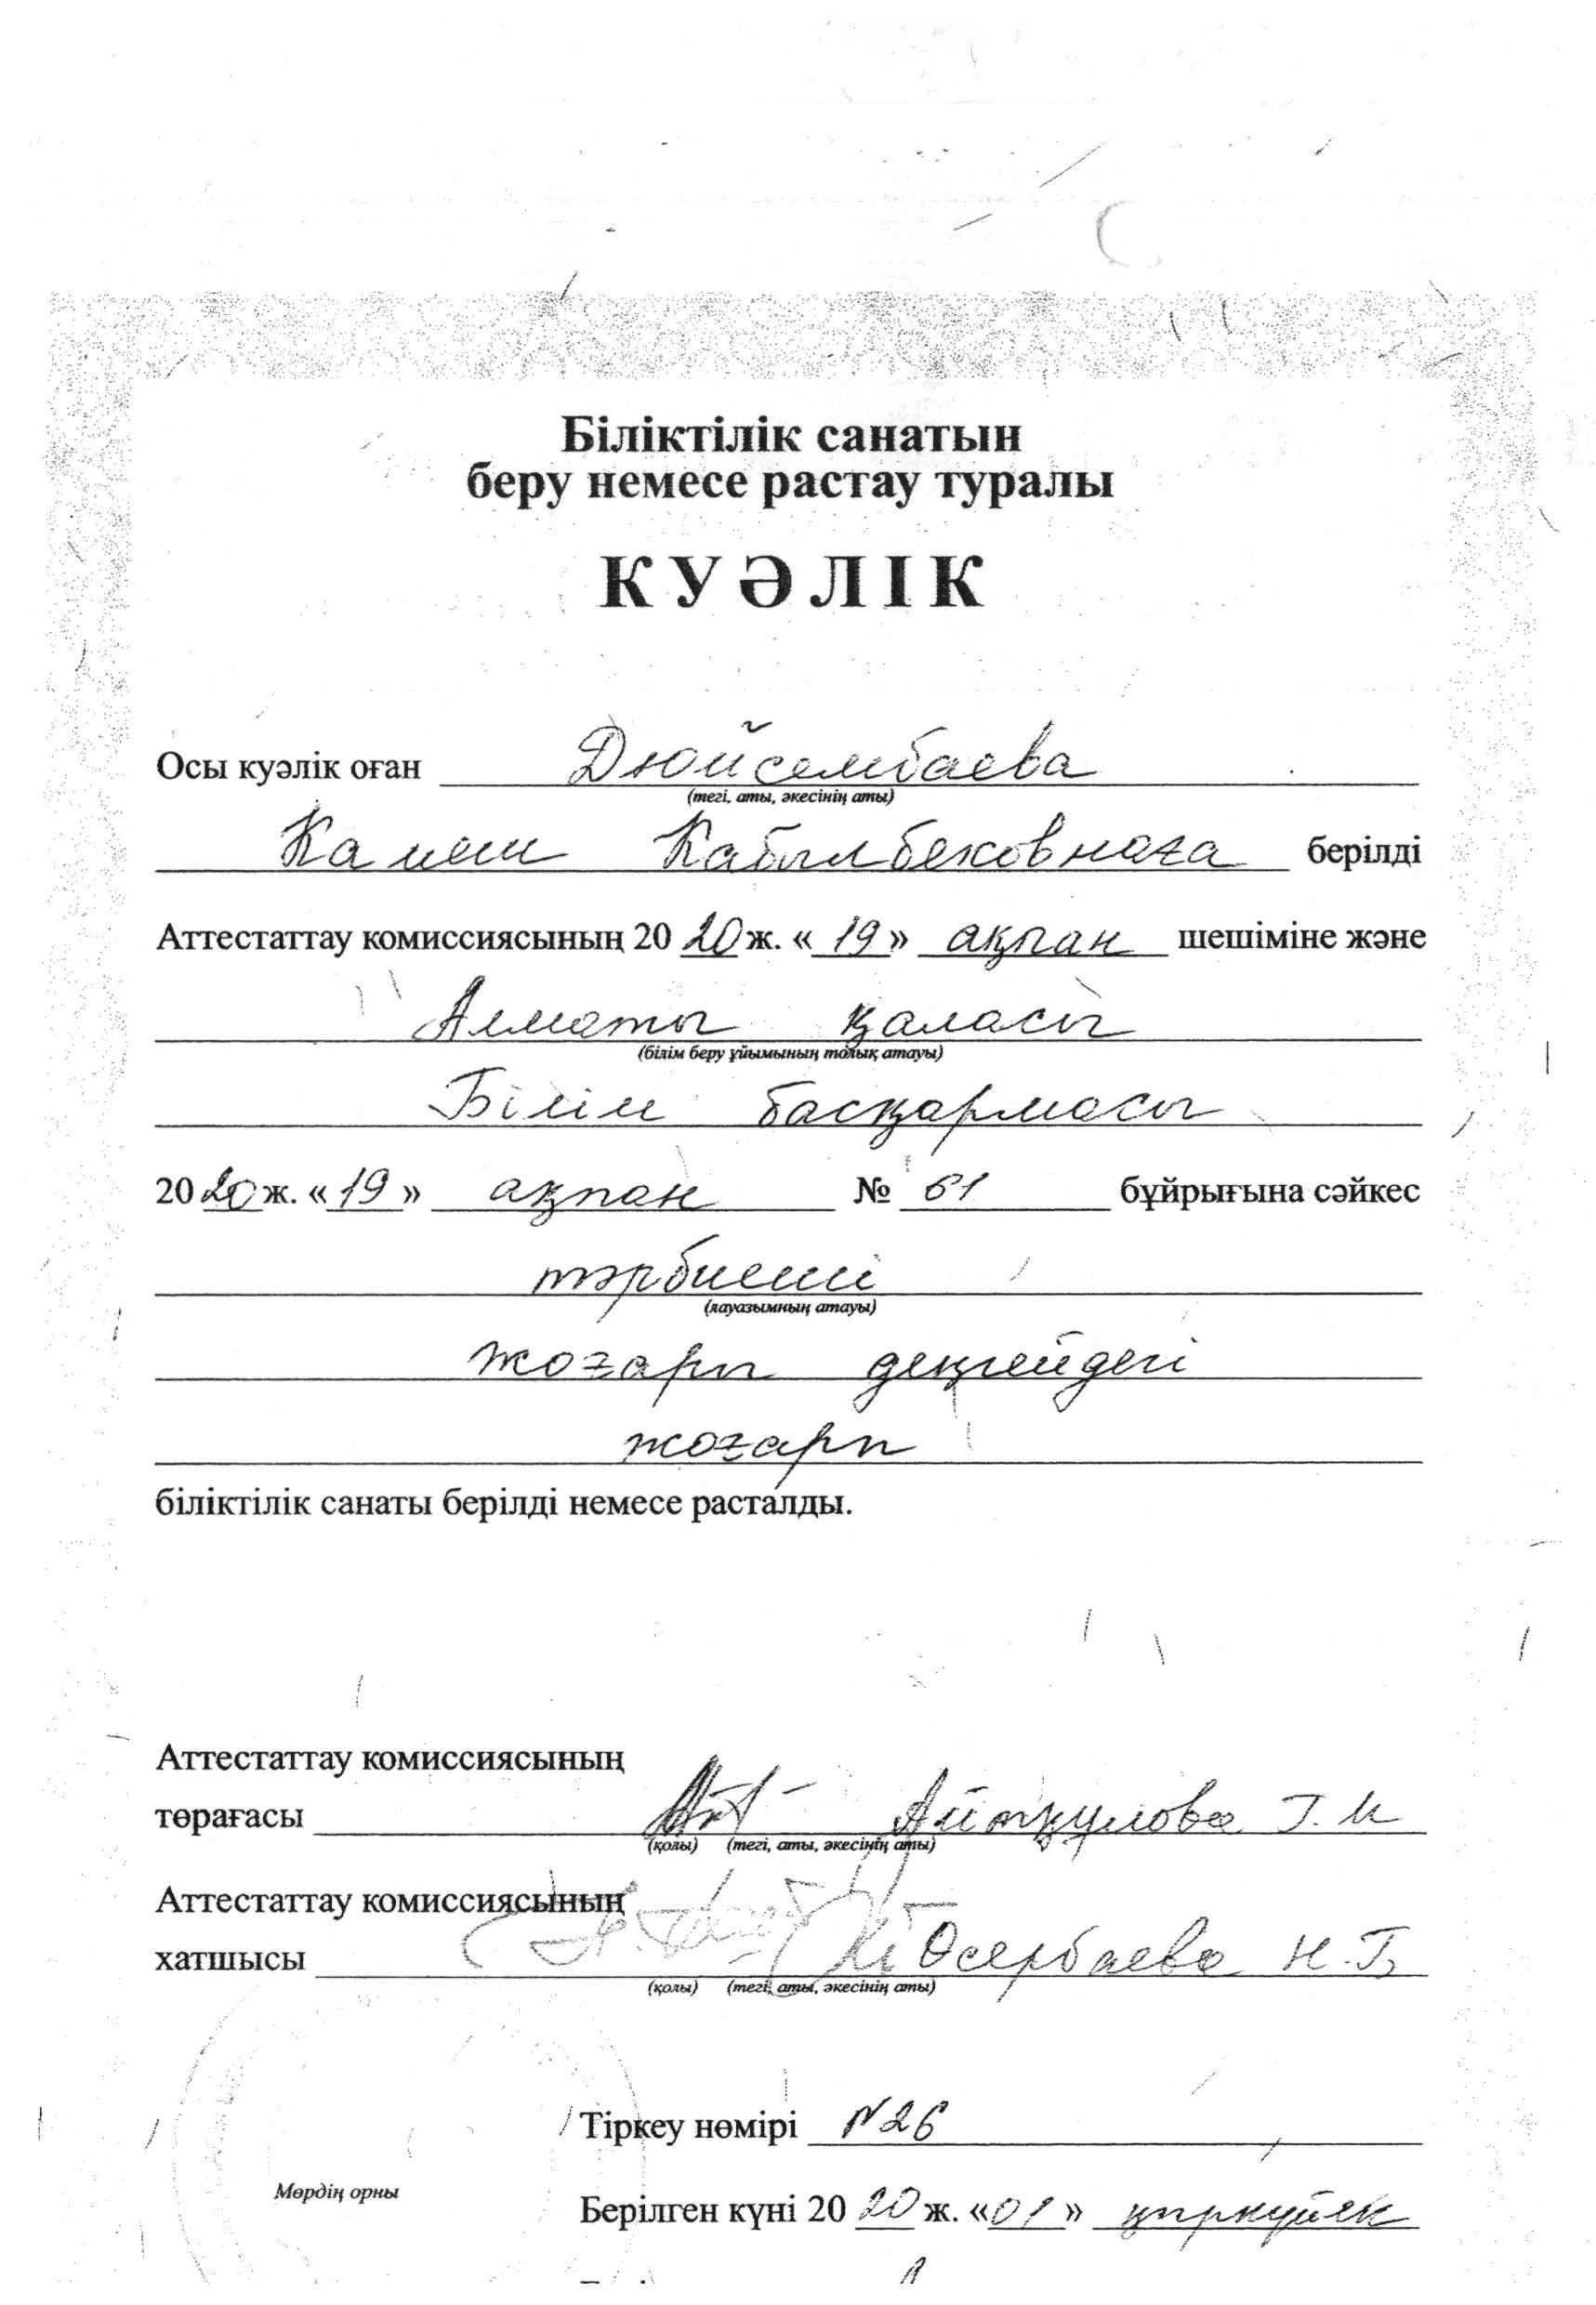 Біліктілік санатын
беру немесе растау туралы
КУӘЛІК
Осы куәлік оған Дюйсембаева
(тегі, аты, әкесінің аты)
Камеш Кабылбековнаға берілді
Аттестаттау комиссиясының 2020 ж. «19» ақпан шешіміне және
Алматы қаласы
(білім беру ұйымының толық атауы)
Білім басқармасы
2020 ж. «19» ақпан № 61 бұйрығына сәйкес
тәрбиеші
(лауазымның атауы)
жоғары деңгейдегі
жоғары
біліктілік санаты берілді немесе расталды.
Аттестаттау комиссиясының
төрағасы Айтқулова Г. И
(қолы) (тегі, аты, әкесінің аты)
Аттестаттау комиссиясының
хатшысы Өсербаева Н. Б
(қолы) (тегі, аты, әкесінің аты)
Тіркеу нөмірі №26
Мөрдің орны
Берілген күні 2020 ж. «01» қыркүйек